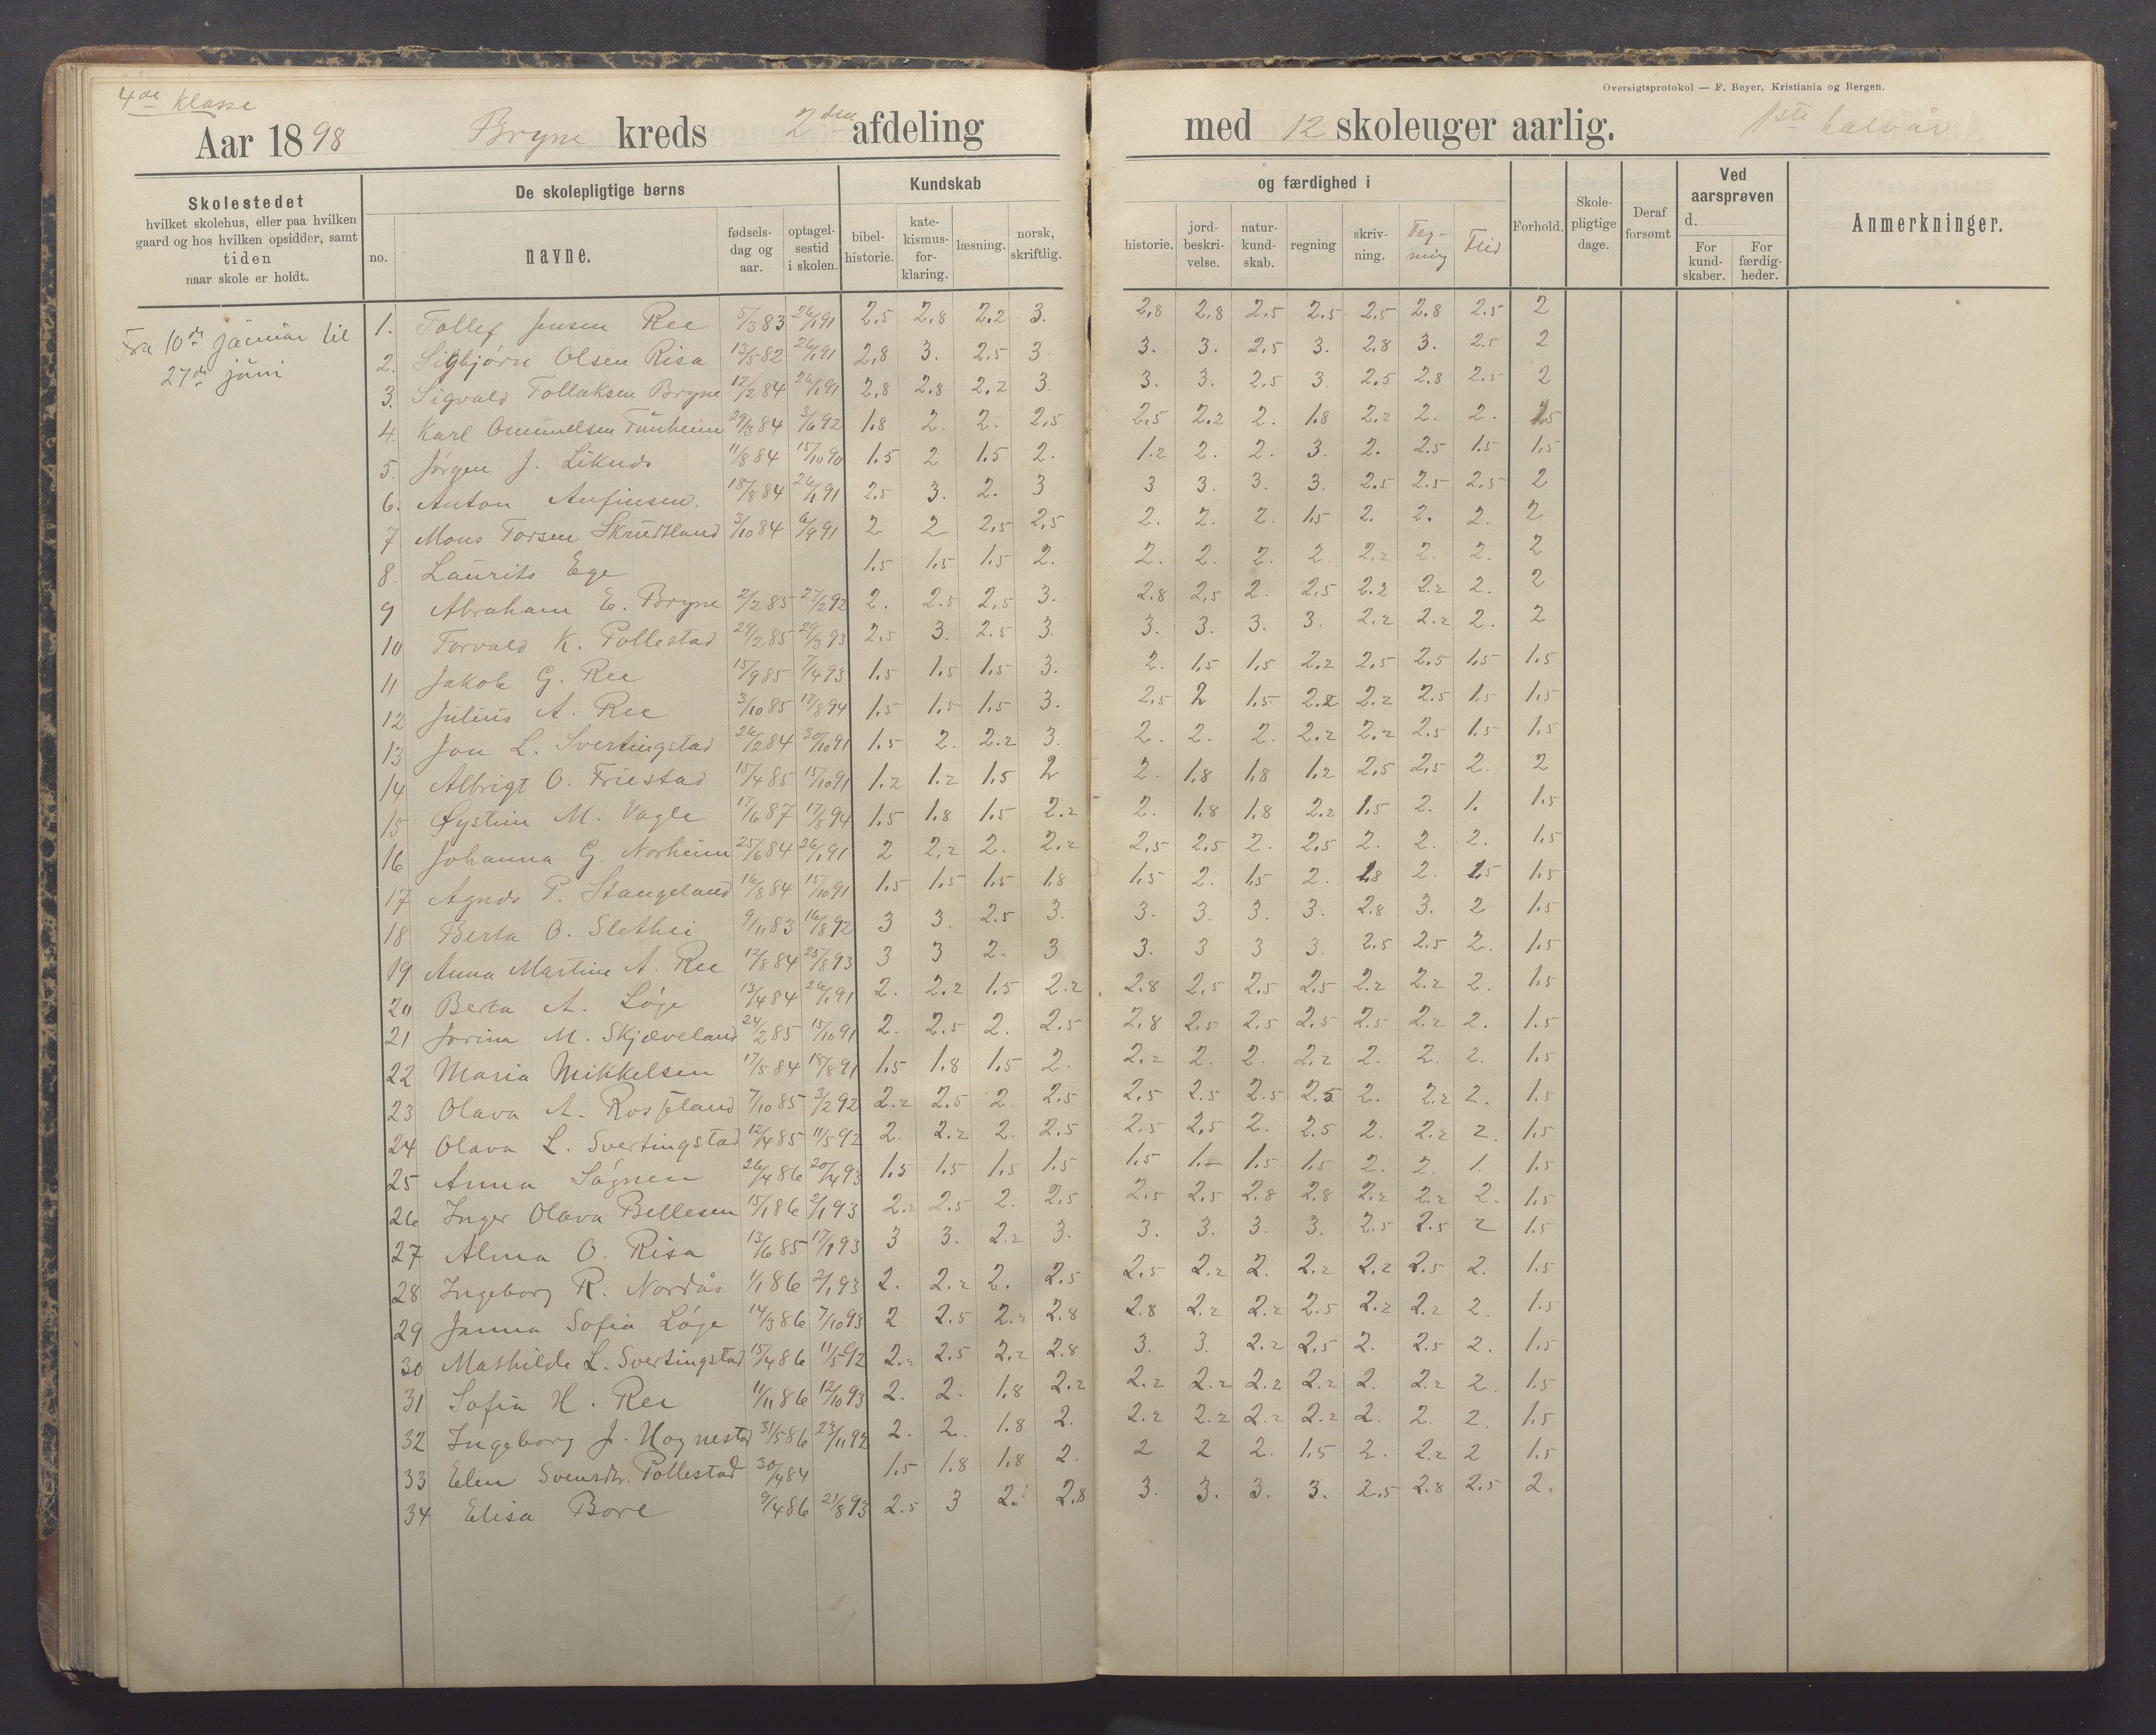 4de klasse
Oversigtsprotokol — F. Beyer, Kristiania og Bergen.
Aar 1898 Bryne kreds 2den afdeling med 12 skoleuger aarlig. 1ste halvår
Skolestedet
hvilket skolehus, eller paa hvilken
gaard og hos hvilken opsidder, samt
tiden
naar skole er holdt.
De skolepligtige børns
no. navne. fødsels-dag og aar. optagel-sestid i skolen.
Kundskab og færdighed i
bibel-historie. kate-kismus-for-klaring. læsning. norsk, skriftlig. historie. jord-beskri-velse. natur-kund-skab. regning skriv-ning. Teg-ning Flid Forhold. Skole-pligtige dage. Deraf forsømt
Ved aarsprøven d.
For kund-skaber. For færdig-heder.
Anmerkninger.
Fra 10de januar til
27de juni
1. Tollef Jensen Ree 5/3 83 26/1 91 2,5 2,8 2,2 3. 2,8 2,8 2,5 2,5 2,5 2,8 2,5 2
2. Sigbjørn Olsen Risa 13/5 82 26/1 91 2,8 3. 2,5 3. 3. 3. 2,5 3. 2,8 3. 2,5 2
3. Sigvald Tollaksen Bryne 12/2 84 26/1 91 2,8 2,8 2,2 3. 3. 3. 2,5 3. 2,5 2,8 2,5 2
4. Karl Omundsen Tunheim 29/3 84 3/6 92 1,8 2. 2. 2,5 2,5 2,2 2. 1,8 2,2 2. 2. 1,5
5. Jørgen J. 11/8 84 15/10 90 1,5 2 1,5 2. 1,2 2. 2. 3. 2. 2,5 1,5 1,5
6. Anton Anfinsen. 18/8 84 26/1 91 2,5 3. 2. 3 3 3. 3. 3. 2,5 2,5 2,5 2
7 Mons Torsen Skrudtland 3/10 84 6/9 91 2 2 2,5 2,5 2. 2. 2. 1,5 2. 2. 2. 2
8. Laurits Ege 1,5 1,5 1,5 2. 2. 2. 2. 2. 2,2 2. 2. 2
9 Abraham E. Bryne 2/2 85 27/2 92 2. 2,5 2,5 3. 2,8 2,5 2. 2,5 2,2 2,2 2. 2
10 Torvald K. Pollestad 29/2 85 29/3 93 2,5 3. 2,5 3. 3. 3. 3. 3. 2,2 2,2 2. 2
11 Jakob G. Ree 15/9 85 7/4 93 1,5 1,5 1,5 3. 2. 1,5 1,5 2,2 2,5 2,5 1,5 1,5
12 Julius A. Ree 3/10 85 17/8 94 1,5 1,5 1,5 3. 2,5 2 1,5 2,2 2,2 2,5 1,5 1,5
13 Jon L. Svertingstad 26/2 84 30/10 91 1,5 2. 2,2 3. 2. 2. 2. 2,2 2,2 2,5 1,5 1,5
14 Albrigt O. Friestad 15/4 85 15/10 91 1,2 1,2 1,5 2 2. 1,8 1,8 1,2 2,5 2,5 2. 2
15 Øystein M. Vagle 17/6 87 17/8 94 1,5 1,8 1,5 2,2 2. 1,8 1,8 2,2 1,5 2. 1. 1,5
16 Johanna G. Norheim 25/6 84 26/1 91 2 2,2 2. 2,2 2,5 2,5 2. 2,5 2. 2. 2. 1,5
17 Agnds P. Stangeland 16/8 84 15/10 91 1,5 1,5 1,5 1,8 1,5 2. 1,5 2. 1,8 2. 1,5 1,5
18 Berta O. Slethei 9/11 83 16/8 92 3 3. 2,5 3. 3. 3. 3. 3. 2,8 3. 2 1,5
19 Anna Martine A. Ree 12/8 84 25/8 93 3 3 2. 3 3. 3 3 3. 2,5 2,5 2. 1,5
20 Berta A. Løge 13/4 84 26/1 91 2. 2,2 1,5 2,2 2,8 2,5 2,5 2,5 2,2 2,2 2. 1,5
21 Jorina M. Skjæveland 24/2 85 15/10 91 2. 2,5 2. 2,5 2,8 2,5 2,5 2,5 2,5 2,2 2. 1,5
22 Maria Mikkelsen 17/5 84 18/8 91 1,5 1,8 1,5 2. 2,2 2. 2. 2,2 2. 2. 2. 1,5
23 Olava A. Rosseland 7/10 85 3/2 92 2,2 2,5 2. 2,5 2,5 2,5 2,5 2,5 2. 2,2 2. 1,5
24 Olava L. Svertingstad 12/4 85 11/5 92 2. 2,2 2. 2,5 2,5 2,5 2. 2,5 2. 2,2 2. 1,5
25 Anna Søgnen 26/4 86 20/4 93 1,5 1,5 1,5 1,5 1,5 1.- 1,5 1,5 2. 2. 1. 1,5
26 Inger Olava Bellesen 15/1 86 2/1 93 2,2 2,5 2. 2,5 2,5 2,5 2,8 2,8 2,2 2,2 2. 1,5
27 Alma O. Risa 13/6 85 17/1 93 3 3. 2,2 3. 3. 3. 3. 3. 2,5 2,5 2 1,5
28 Ingeborg R. Nordås 1/1 86 2/1 93 2. 2,2 2. 2,5 2,5 2,2 2. 2,2 2,2 2,5 2. 1,5
29 Janna Sofia Løge 14/3 86 7/10 93 2 2,5 2,2 2,8 2,8 2,2 2,2 2,5 2,2 2,2 2. 1,5
30 Mathilde L. Svertingstad 15/4 86 11/5 92 2,2 2,5 2,2 2,8 3. 3. 2,2 2,5 2. 2,5 2. 1,5
31 Sofia H. Ree 11/11 86 12/10 93 2. 2. 1,8 2,2 2,2 2,2 2,2 2,2 2. 2,2 2. 1,5
32 Ingeborg J. Hognestad 31/5 86 23/11 92 2. 2. 1,8 2. 2,2 2,2 2,2 2,2 2. 2. 2. 1,5
33 Elen Svensdr. Pollestad 30/4 84 1,5 1,8 1,8 2. 2 2 2. 1,5 2. 2,2 2 1,5
34 Elisa Bore 9/4 86 21/8 93 2,5 3 2. 2,8 3. 3. 3. 3. 2,5 2,8 2,5 2.